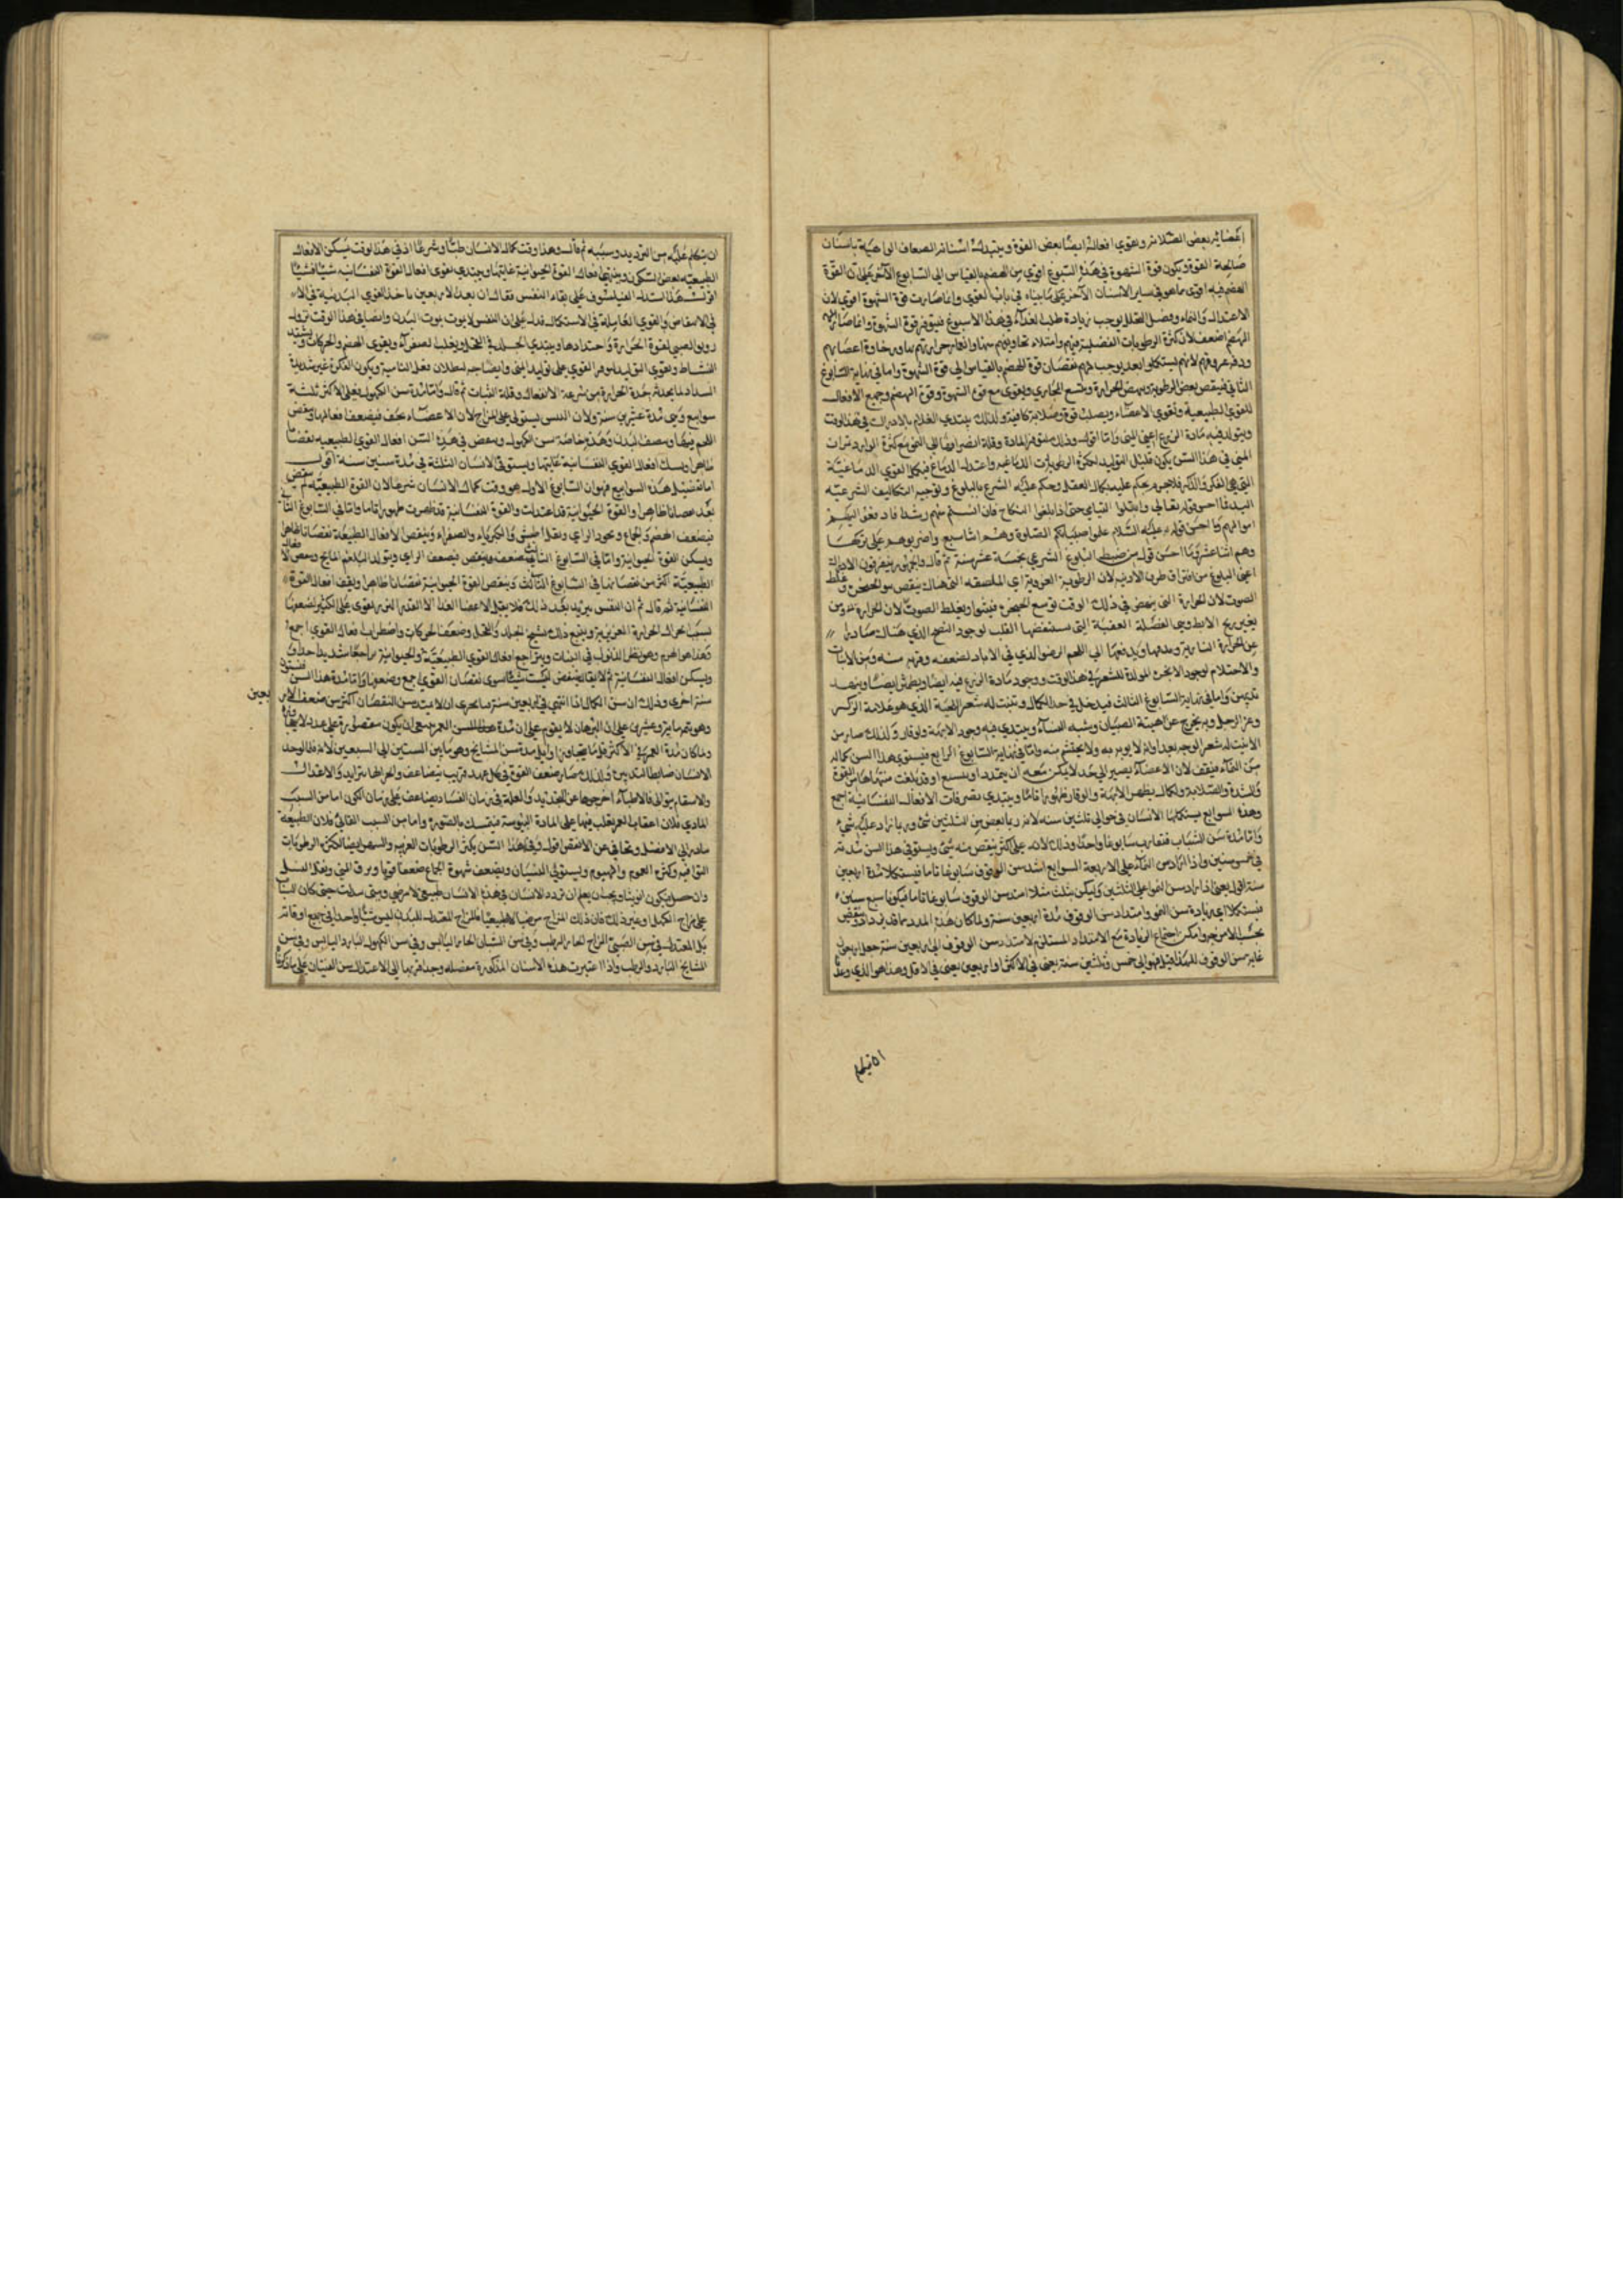 اعضائه بعض الصلابة ويقوي افعاله ايضا بعض القوة ويتبدل اسنانه الضعاف الواهية باسنان
صالحة القوة ويكون قوة الشهوة في هذا السبوع اقوي من الهضم بالقياس الي السابوع الآخر علي ان القوة
الهضم فيه اقوي مما هو في ساير الاسنان الآخر علي ما بيناه في باب القوي وانما صارت قوة الشهوة اقوي لان
الاغتذاء والنماء وفضل التحلل يوجب زيادة طلب الغذاء في هذا الاسبوع فيتوفر قوة الشهوة وانما صار
الهضم اضعف لان كثرة الرطوبات الفضلية فيهم وامتلاء تجاويفهم منها وانغمار حرارتهم بها ورخاوة اعضائهم
لم يستكملوا بعد يوجب لهم نقصان قوة الهضم بالقياس الي قوة الشهوة واما في نهاية السابوع
الثاني فينقص بعض الرطوبة وينهض الحرارة ويتسع المجاري ويقوي مع قوة الشهوة وقوة الهضم وجميع الافعال
للقوي الطبيعية وتقوي الاعضاء ويصلب قوة وصلابة كافية ولذلك يبتدي الغلام بالادراك في هذا الوقت
ويتولد فيه مادة الزرع اعني المني
المني في هذا السن يكون قليل التوليد لكثرة الرطوبات الدماغية واعتدال الدماغ فيكمل القوي الدماغية
التي هي الفكر والذكر فلا جرم يحكم عليه بكمال العقل وحكم عليه الشرع بالبلوغ وتوجيه التكاليف الشرعية
اليه فما احسن قوله تعالي وابتلوا اليتامي حتي اذا بلغوا النكاح فان انستم منهم رشدا فادفعوا اليهم
اموالهم وما احسن قوله عليه السلام علموا صبيانكم الصلوة وهم ابنا سبع واضربوهم علي تركها
وهم ابنا عشر وما احسن قول من ضبط البلوغ الشرعي بخمسة عشر سنة ثم قال والجمهور يتعرفون الادراك
اعني البلوغ من افتراق طرف الارنبة لان الرطوبة الغروية اي الملصقة التي هناك ينقص
الصوت لان الحرارة التي ينهض في ذلك الوقت توسع الحنجرة فيتسع ويغلظ الصوت لان الحرارة
بتغير ريح الابط وهي الفضلة العفنة التي يستنفضها القلب لوجود النضج الذي هناك صادرا
عن الحرارة النارية ويدفعها الي اللحم الرخو الذي في الاباط لضعفه وقربه منه ومن الانبات
والاحتلام لوجود الابخرة المولدة للشعر في هذا الوقت ووجود مادة الزرع فيه ايضا
واما في نهاية السابوع الثالث فيدخل في حد الكمال وتنبت له شعر اللحية الذي هو علامة الذكر
وعز الرجل وبه يخرج عن هيئة الصبيان وشبه النساء ويبتدي فيه وجود الابهة والوقار ولذلك صار من
لا ينبت له شعر الوجه بعد اوانه لا يوبه به ولا يحتشم منه واما في نهاية السابوع الرابع فيستوفي هذا السن كماله
من النماء فيقف لان الاعضاء يصير الي حد لا يمكن معه ان يتمدد او يتسع
والشدة والصلابة والكمال يظهر الابهة والوقار ظهورا تاما ويبتدي تصرفات الافعال النفسانية اجمع
وهذه السوابيع يستكملها الانسان في حوالي ثلثين سنة لانه ربما بعض من الثلثين شي وربما زاد عليه شي
واما مدة سن الشباب فتقارب سابوعا واحدا وذلك لانه علي الاكثر ينقص منه شي ويستوفي هذا السن مدته
في خمس سنين واذا زاد سن النماء علي الاربعة السوابيع امتد سن الوقوف سابوعا تاما فيستكمل مدة اربعين
سنة اقول يعني اذا زاد سن النمو علي الثلثين وليكن بثلث مثلا امتد سن الوقوف سابوعا تاما فيكونا سبع سنين
فيستكملا اي زيادة سن النمو وامتداد سن الوقوف مدة اربعين سنة ولما كان هذه المدد
بحسب الامزجة وامكن اجتماع الزيادة مع الامتداد المستلزم لامتداد سن الوقوف الي اربعين سنة جعل اربعين
غاية سن الوقوف فلهذا قيل فهو الي خمس وثلثين سنة يعني في الاكثر او اربعين يعني في الاقل وهذا هو الذي وعدنا
ان يتكلم عليه من الترديد وسببه ثم قال وهذا وقت كمال الانسان طبا وشرعا اذ في هذا الوقت يسكن الافعال
الطبيعية بعض السكون وينتهي افعال القوة الحيوانية غايتها ويبتدي يقوي افعال القوة النفسانية شيئا فشيئا
اقول بهذا استدل الفيلسوف علي بقاء النفس فقال ان بعد الاربعين ياخذ القوي البدنية في
الانتقاص والقوي العاقلة في الاستكمال فدل علي ان النفس لا يموت بموت البدن وايضا في هذا الوقت تزول
لقوة الحرارة واحتدادها ويبتدي الجلد في القحل ويغلب الصفراء ويقوي الهضم والحركات
النشاط ويقوي التوليد لوفور القوي علي توليد المني وانضاجه لبطلان فعل النامية ويكون الفكر غير شديد
السداد لما يحدثه حدة الحرارة من سرعة الانفعال وقلة الثبات ثم قال واما مدة سن الكهول فعلي الاكثر ثلثة
سوابيع وهي مدة عشرين سنة ولان اليبس يستولي علي المزاج لان الاعضاء يجف فيضعف افعالها وينقص
اللحم فيها ويضعف البدن وهذه خاصة سن الكهول وينقص في هذه السن افعال القوي الطبيعية نقصانا
ظاهرا ويبلغ افعال القوي النفسانية غايتها ويستوفي الانسان الثلثة في مدة ستين سنة اقول
اما تفصيل هذه السوابيع فهو ان السابوع الاول هو وقت كمال الانسان شرعا لان القوة الطبيعية لم ينقص
بعد نقصانا ظاهرا والقوة الحيوانية قد اعتدلت والقوة النفسانية قد ظهرت ظهورا تاما واما في السابوع الثاني
فيضعف الهضم والجماع ويجود الراي ويقل الطيش والكبرياء والصفراء وينقص الافعال الطبيعية نقصانا ظاهرا
ويسكن القوة الحيوانية واما في السابوع الثالث فيضعف وينقص بضعف الراي ويتولد البلغم المالح
الطبيعية اكثر من نقصانها في السابوع الثالث وينقص القوة الحيوانية نقصانا ظاهرا ويقف افعال القوة
النفسانية ثم قال ثم ان اليبس يزيد بعد ذلك فلا يقبل الاعضا الغذا الا القدر النزر
ويتبع ذلك تشنج الجلد والقحل وضعف الحركات واضطراب افعال القوي اجمع
وهذا هو الهرم وهو نظير الذبول في النبات ويتراجع افعال القوي الطبيعية والحيوانية تراجعا شديدا جدا
ويسكن افعال النفسانية ثم لا يبقاله ينقص ليست شيئا سوي نقصان القوي اجمع وضعفها واما مدة هذا السن فستون
سنة اخري وذلك ان سن الكمال اذا انتهي في اربعين سنة فبالحري ان لا يمتد سن النقصان اكثر من ضعف الاربعين
وهو يتم مائة وعشرين علي ان البرهان لا يقوم علي ان مدة هذا السن
ولما كان مدة العمر في الاكثر قلما يتجاوز اوايل مدة سن المشايخ وهو ما بين الستين الي السبعين
ولذلك صار ضعف القوة في كل مدد قريب يتضاعف وانحرافها يتزايد والاعذار
والاسقام يتوالي فالاطباء اخرجوها عن التحديد والعلة في زمان الفساد يضاعف علي زمان الكون اما من السبب
المادي فلان اعقاب العمر يغلب فيها علي المادة اليبوسة فيتمسك بالصورة واما من السبب الغائي فلان الطبيعة
مبادرة الي الافضل وتجافي عن الانقص اقول وفي هذا السن يكثر الرطوبات الغريبة والسهر ايضا لكثرة الرطوبات
التافهة وكثرة الهموم والهموم ويستولي النسيان ويضعف شهوة الجماع ضعفا قويا ويرق المني ويقل النسل
وان حصل فيكون اناثا ويجب ان يعلم ان تردد الانسان في هذه الاسنان طبيعي لا مرضي
علي مزاج الكهل او غير ذلك فان ذلك المزاج مرضيا لا طبيعيا فالمزاج المعتدل للبدن ليس شيئا واحدا في جميع اوقاته
بل المعتدل في سن الصبي المزاج الحار الرطب وفي سن الشبان الحار اليابس وفي سن الكهول البارد اليابس وفي سن
المشايخ البارد والرطب واذا اعتبرت هذه الاسنان المذكورة مفصلة وجد اقربها الي الاعتدال سن الفتيان علي ما ذكرنا